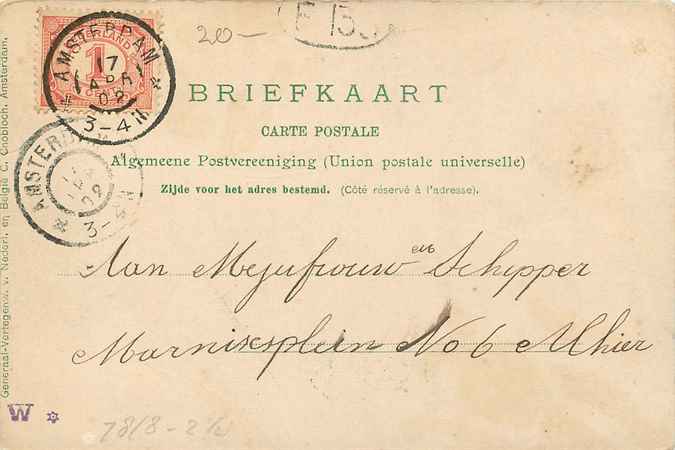 20-
F 15
NEDERLAND
1
CENT
AMSTERDAM
17
APR
02
3-4 N
AMSTERDAM
02
3-4 N
BRIEFKAART
CARTE POSTALE
Algemeene Postvereeniging (Union postale universelle)
Zijde voor het adres bestemd. (Côté réservé à l'adresse).
Aan Mejufvrouw en Schipper
Marnixsplein No 6 Alhier
Generaal-Vertegenw. v. Nederl. en België C. Cnobloch, Amsterdam.
W